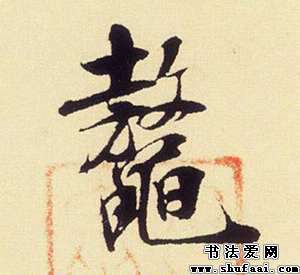 鼇
书法爱网
www.shufaai.com